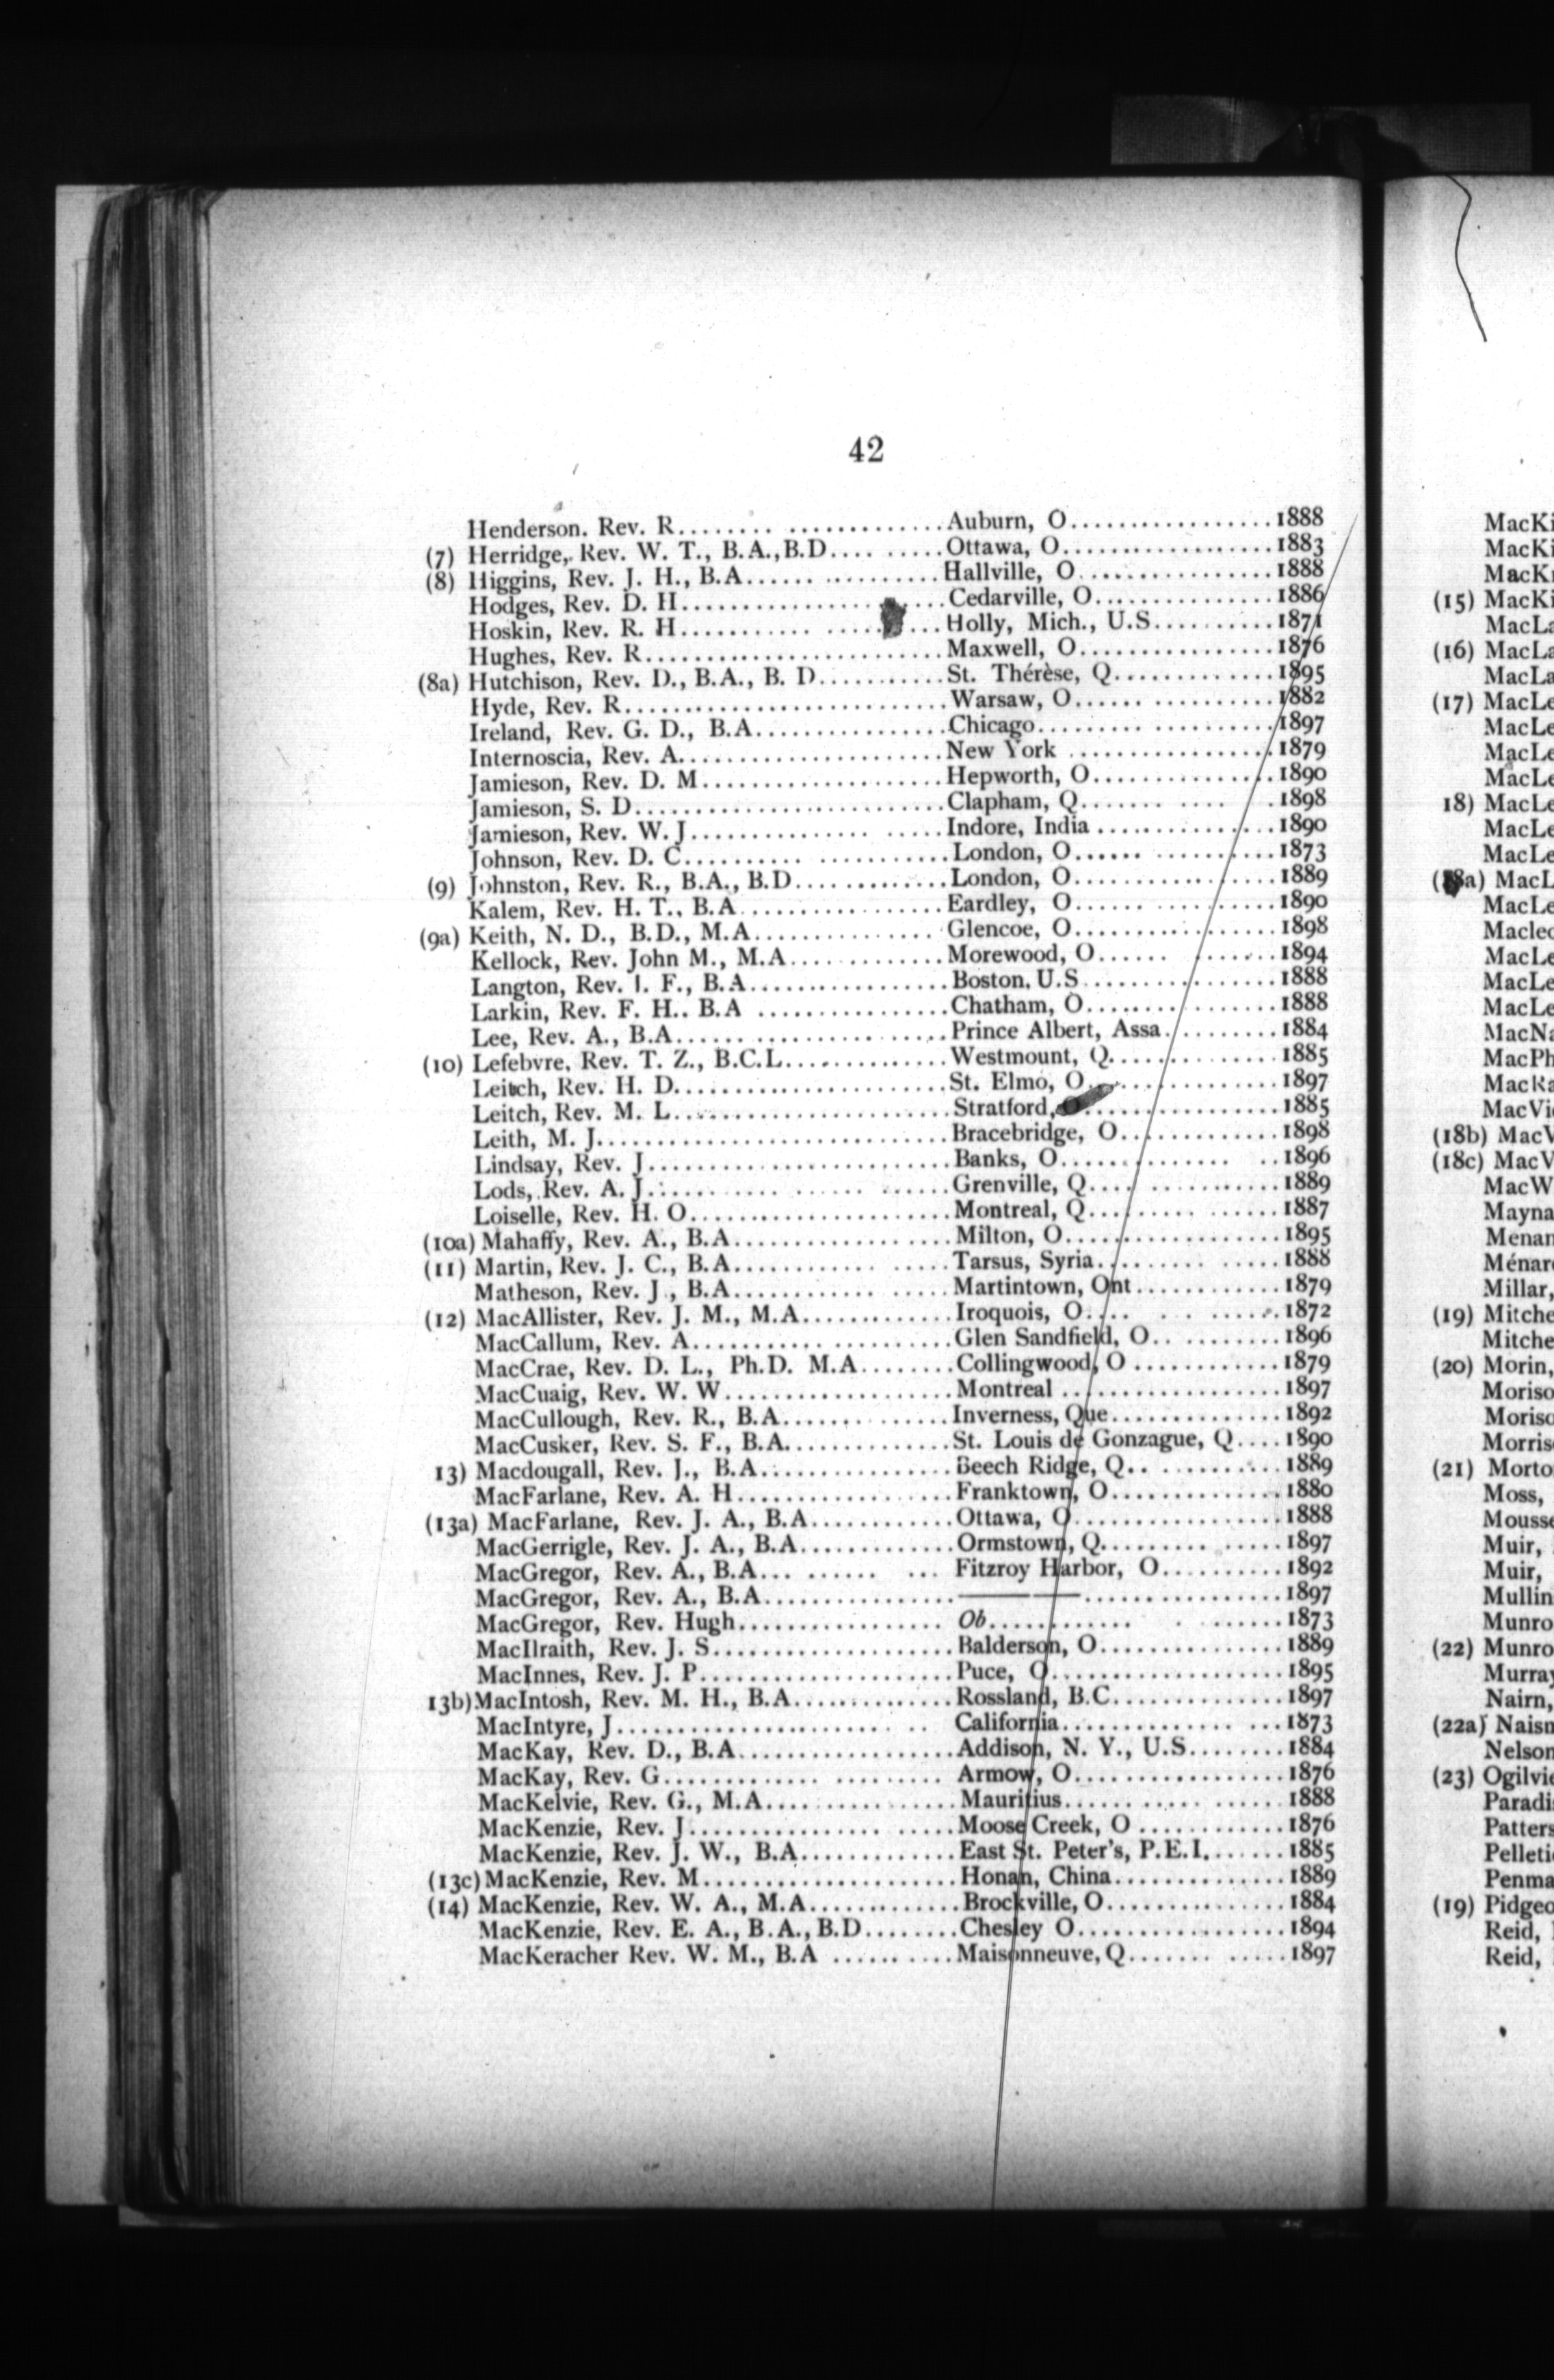 42
Henderson. Rev. R........ ..............Auburn, O.................1888
(7) Herridge,. Rev. W. T., B.A.,B.D.... .....Ottawa, O..................1883
(8) Higgins, Rev. J. H., B.A...... ..........Hallville, O.................1888
Hodges, Rev. D. H..........................Cedarville, O...............1886
Hoskin, Rev. R. H........... ...........Holly, Mich., U.S..........1871
Hughes, Rev. R.........................Maxwell, O.................1876
(8a) Hutchison, Rev. D., B.A., B. D...........St. Thérèse, Q..............1895
Hyde, Rev. R...........................Warsaw, O...... ..........1882
Ireland, Rev. G. D., B.A................Chicago......... ..........1897
Internoscia, Rev. A......................New York .................1879
Jamieson, Rev. D. M.....................Hepworth, O...............1890
Jamieson, S. D..........................Clapham, Q....... .... .1898
Jamieson, Rev. W. J............... .....Indore, India ...............1890
Johnson, Rev. D. C.......... ...........London, O...... ..........1873
(9) Johnston, Rev. R., B.A., B.D.............London, O.................1889
Kalem, Rev. H. T., B.A.................Eardley, O...... ..........1890
(9a) Keith, N. D., B.D., M.A...............Glencoe, O.................1898
Kellock, Rev. John M., M.A.............Morewood, O...... .......1894
Langton, Rev. I. F., B.A.................Boston. U.S................1888
Larkin, Rev. F. H.. B.A ................Chatham, O................1888
Lee, Rev. A., B.A.......................Prince Albert, Assa..........1884
(10) Lefebvre, Rev. T. Z., B.C.L..............Westmount, Q..............1885
Leitch, Rev. H. D.......................St. Elmo, O................1897
Leitch, Rev. M. L.......................Stratford, O.................1885
Leith, M. J.............................Bracebridge, O.............1898
Lindsay, Rev. J.........................Banks, O.............. ..1896
Lods, Rev. A. J........... ..... ......Grenville, Q.... ...........1889
Loiselle, Rev. H. O......................Montreal, Q.......... ......1887
(10a) Mahaffy, Rev. A., B.A..................Milton, O..................1895
(11) Martin, Rev. J. C., B.A............ .....Tarsus, Syria......... .....1888
Matheson, Rev. J., B.A............ .....Martintown, Ont............1879
(12) MacAllister, Rev. J. M., M.A.............Iroquois, O.... . ......1872
MacCallum, Rev. A........... ..........Glen Sandfield, O.. ........1896
MacCrae, Rev. D. L., Ph.D. M.A........Collingwood, O ............1879
MacCuaig, Rev. W. W...................Montreal ..................1897
MacCullough, Rev. R., B.A..............Inverness, Que..............1892
MacCusker, Rev. S. F., B.A..............St. Louis de Gonzague, Q....1890
13) Macdougall, Rev. J., B.A................Beech Ridge, Q.. ..........1889
MacFarlane, Rev. A. H..................Franktown, O..............1880
(13a) MacFarlane, Rev. J. A., B.A............Ottawa, O.................1888
MacGerrigle, Rev. J. A., B.A.............Ormstown, Q......... .....1897
MacGregor, Rev. A., B.A... ...... ... Fitzroy Harbor, O..........1892
MacGregor, Rev. A., B.A................—————.................1897
MacGregor, Rev. Hugh................. Ob............ . .......1873
MacIlraith, Rev. J. S....................Balderson, O...............1889
MacInnes, Rev. J. P.....................Puce, O...................1895
13b)MacIntosh, Rev. M. H., B.A..............Rossland, B.C..............1897
MacIntyre, J....................... .. California.............. ...1873
MacKay, Rev. D., B.A..................Addison, N. Y., U.S........1884
MacKay, Rev. G............. ......... Armow, O.................1876
MacKelvie, Rev. G., M.A................Mauritius........... ......1888
MacKenzie, Rev. J................ .....Moose Creek, O ............1876
MacKenzie, Rev. J. W., B.A.............East St. Peter's, P.E.I.......1885
(13c) MacKenzie, Rev. M.....................Honan, China..............1889
(14) MacKenzie, Rev. W. A., M.A.............Brockville, O...............1884
MacKenzie, Rev. E. A., B.A., B.D........Chesley O..................1894
MacKeracher Rev. W. M., B.A ..........Maisonneuve, Q....... .....1897
(15)
(16)
(17)
18)
(18b)
(18c)
Millar,
(19)
(20) Morin,
(21)
Moss,
Muir,
Muir,
(22)
Nairn,
(22a)
(23)
(19)
Reid,
Reid,